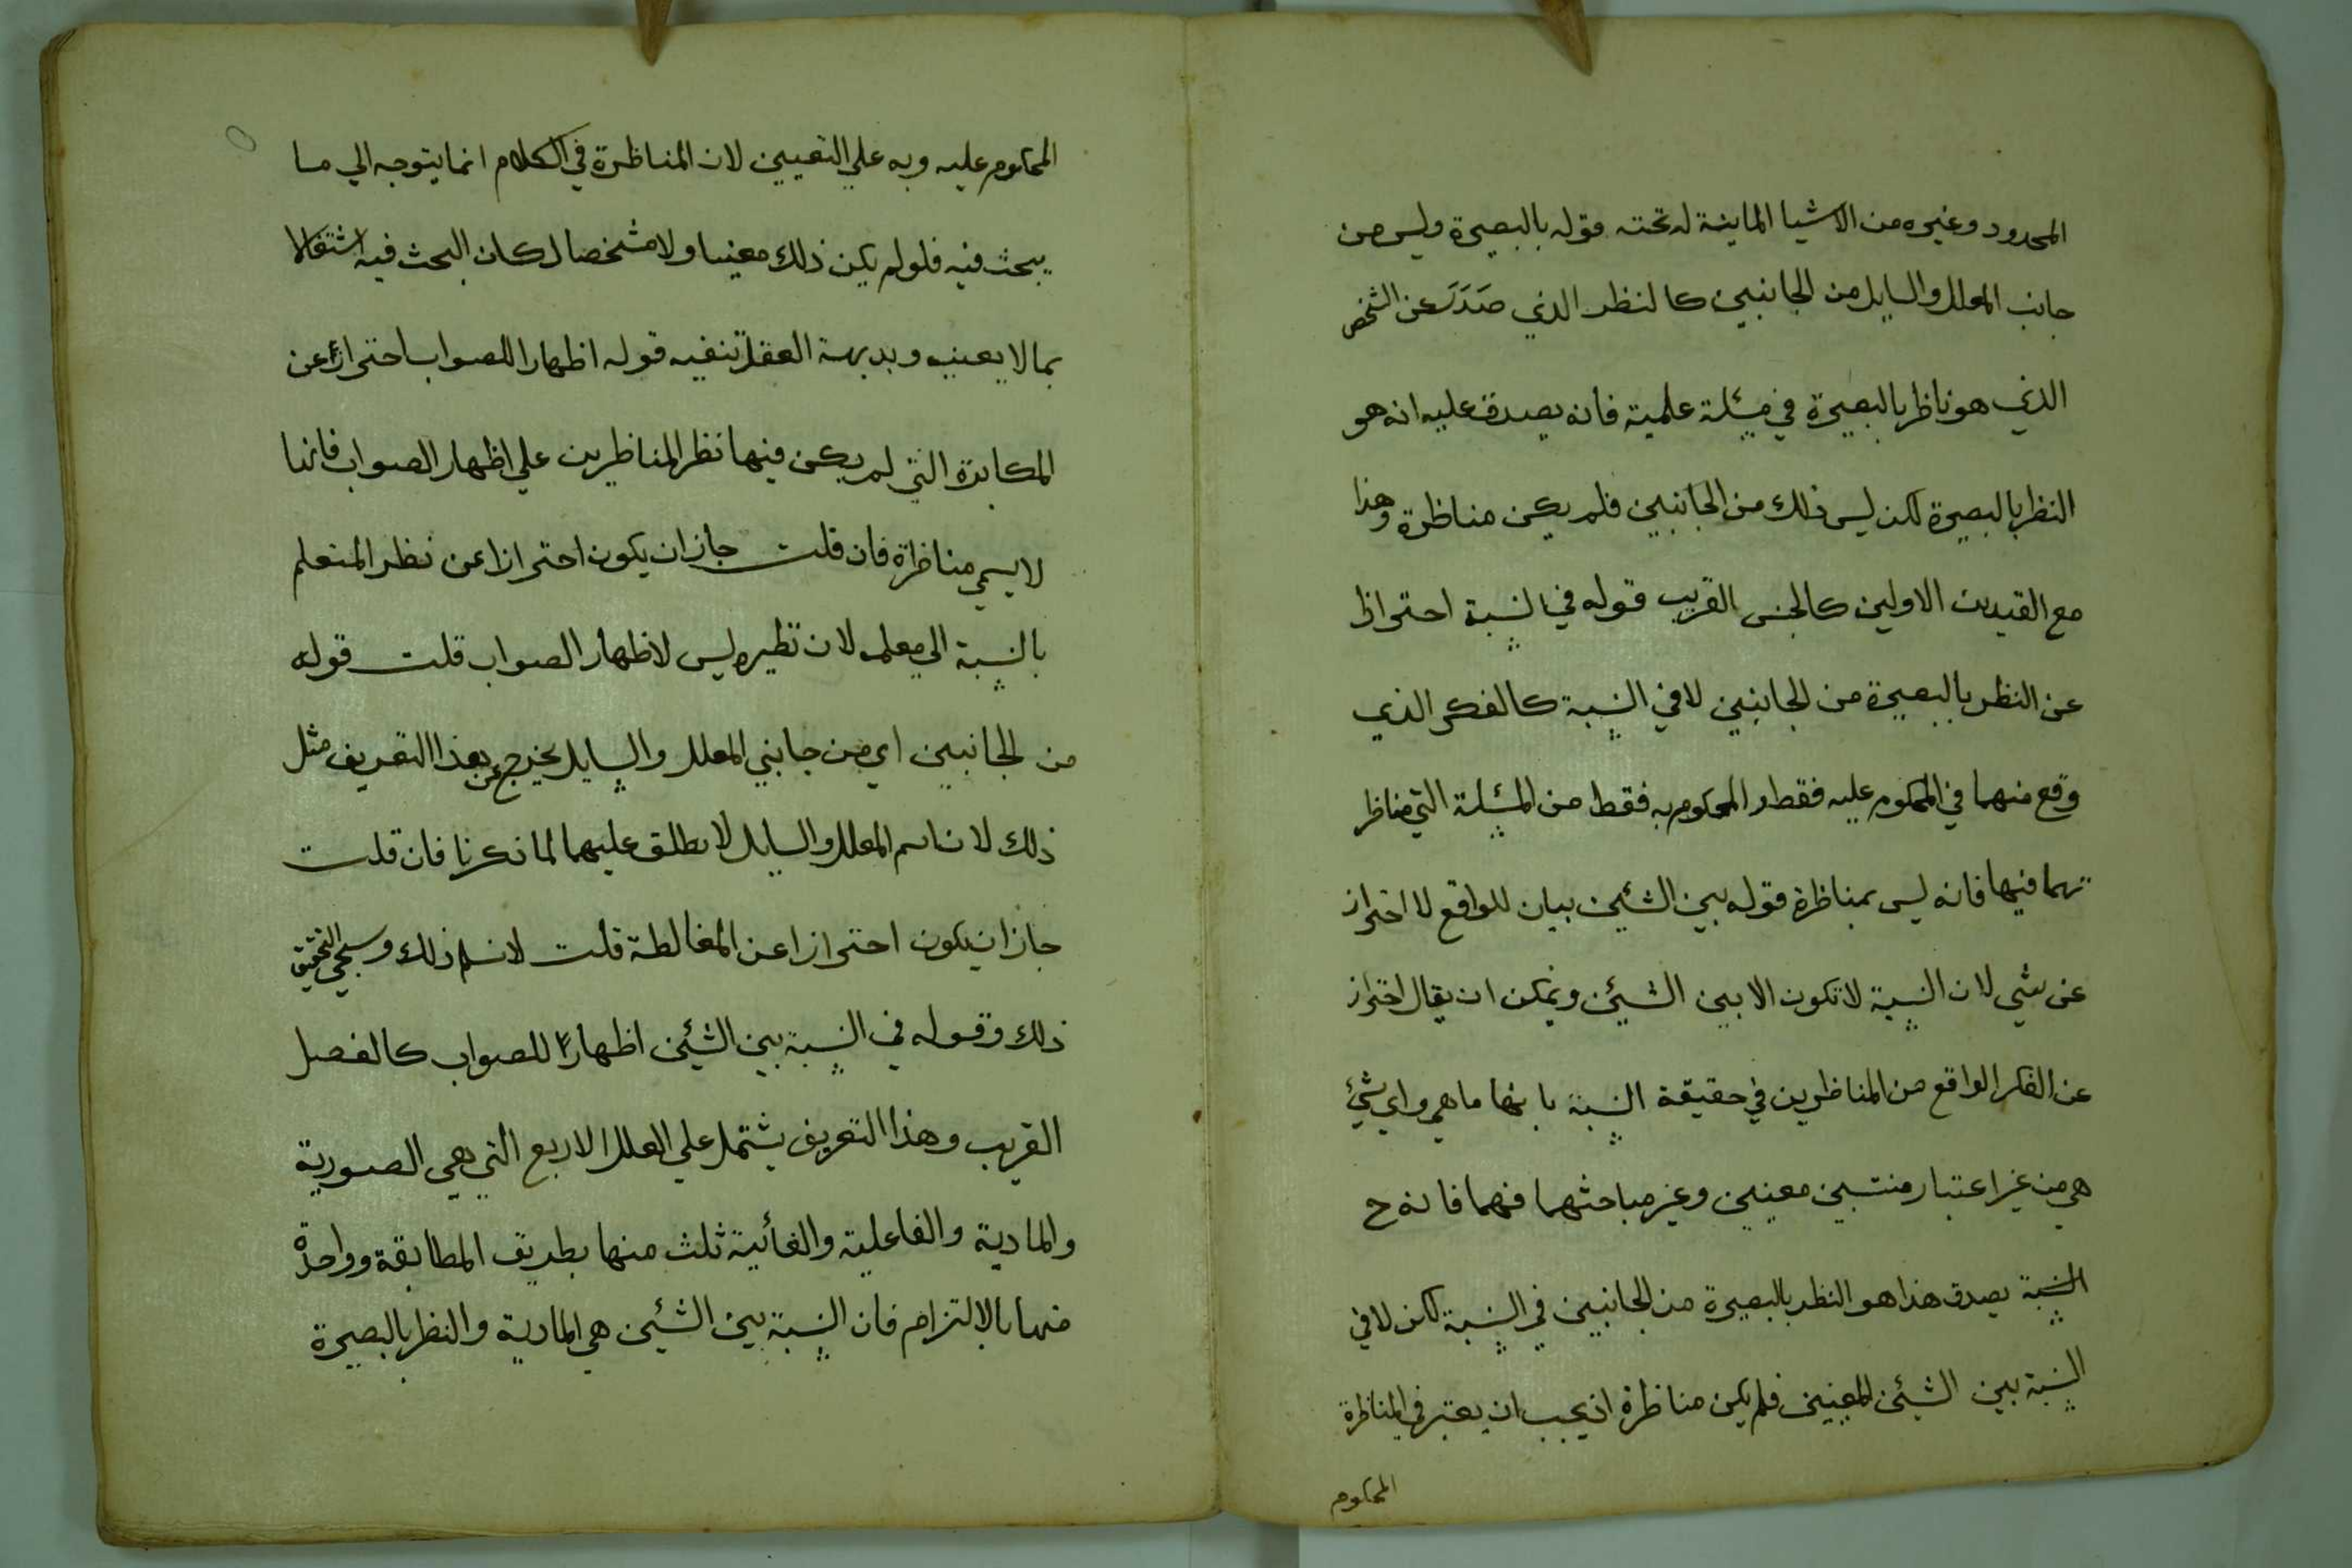 المحدود وغيره من الاشيا المباينة له تحته قوله بالبصيرة وليس من
جانب المعلل والسايل من الجانبين كالنظر الذي صَدَرَ عن الشخص
الذي هو ناظر بالبصيرة في مسئلة علمية فانه يصدق عليه انه هو
النظر بالبصيرة لكن ليس ذلك من الجانبين فلم يكن مناظرة وهذا
مع القيدين الاولين كالجنس القريب قوله في النسبة احترازا
عن النظر بالبصيرة من الجانبين لا في النسبة كالفكر الذي
وقع منهما في المحكوم عليه فقط او المحكوم به فقط من المسئلة التي مناظر
تهما فيها فانه ليس بمناظرة قوله بين الشئين بيان للواقع لا احتراز
عن شي لان النسبة لا تكون الا بين الشيئن ويمكن ان يقال احتراز
عن الفكر الواقع من المناظرين في حقيقة النسبة بانها ما هي واي شئ
هي من غير اعتبار منتسبين معينين وغير مباحثهما فيهما فانه ح
النسبة يصدق هذا هو النظر بالبصيرة من الجانبين في النسبة لكن لا في
النسبة بين الشيئن المعينين فلم يكن مناظرة اذ يجب ان يعتبر في المناظرة
المحكوم
المحكوم عليه وبه علي التعيين لان المناظرة في الكلام انما يتوجه الي ما
يبحث فيه فلو لم يكن ذلك معينا ولا مشخصا لكان البحث فيه اشتغالا
بما لا يعنيه وبديهة العقل تنفيه قوله اظهارا للصواب احترازًا عن
المكابرة التي لم يكن فيها نظر المناظرين علي اظهار الصواب فانها
لا يسمي مناظرة فان قلت جاز ان يكون احترازا عن نظر المتعلم
بالنسبة الي معلمه لان نظيره ليس لاظهار الصواب قلت قوله
من الجانبين اي من جانبي المعلل والسايل يخرج عن هذا التعريف مثل
ذلك لان اسم المعلل والسايل لا يطلق عليهما لما ذكرنا فان قلت
جاز ان يكون احترازا عن المغالطة قلت لا نسلم ذلك وسيجي التحقيق
ذلك وقوله في النسبة بين الشئين اظهارًا للصواب كالفصل
القريب وهذا التعريف يشتمل علي العلل الاربع التي هي الصورية
والمادية والفاعلية والغائية ثلث منها بطريق المطابقة وواحدة
منها بالالتزام فان النسبة بين الشئين هي المادية والنظر بالبصيرة